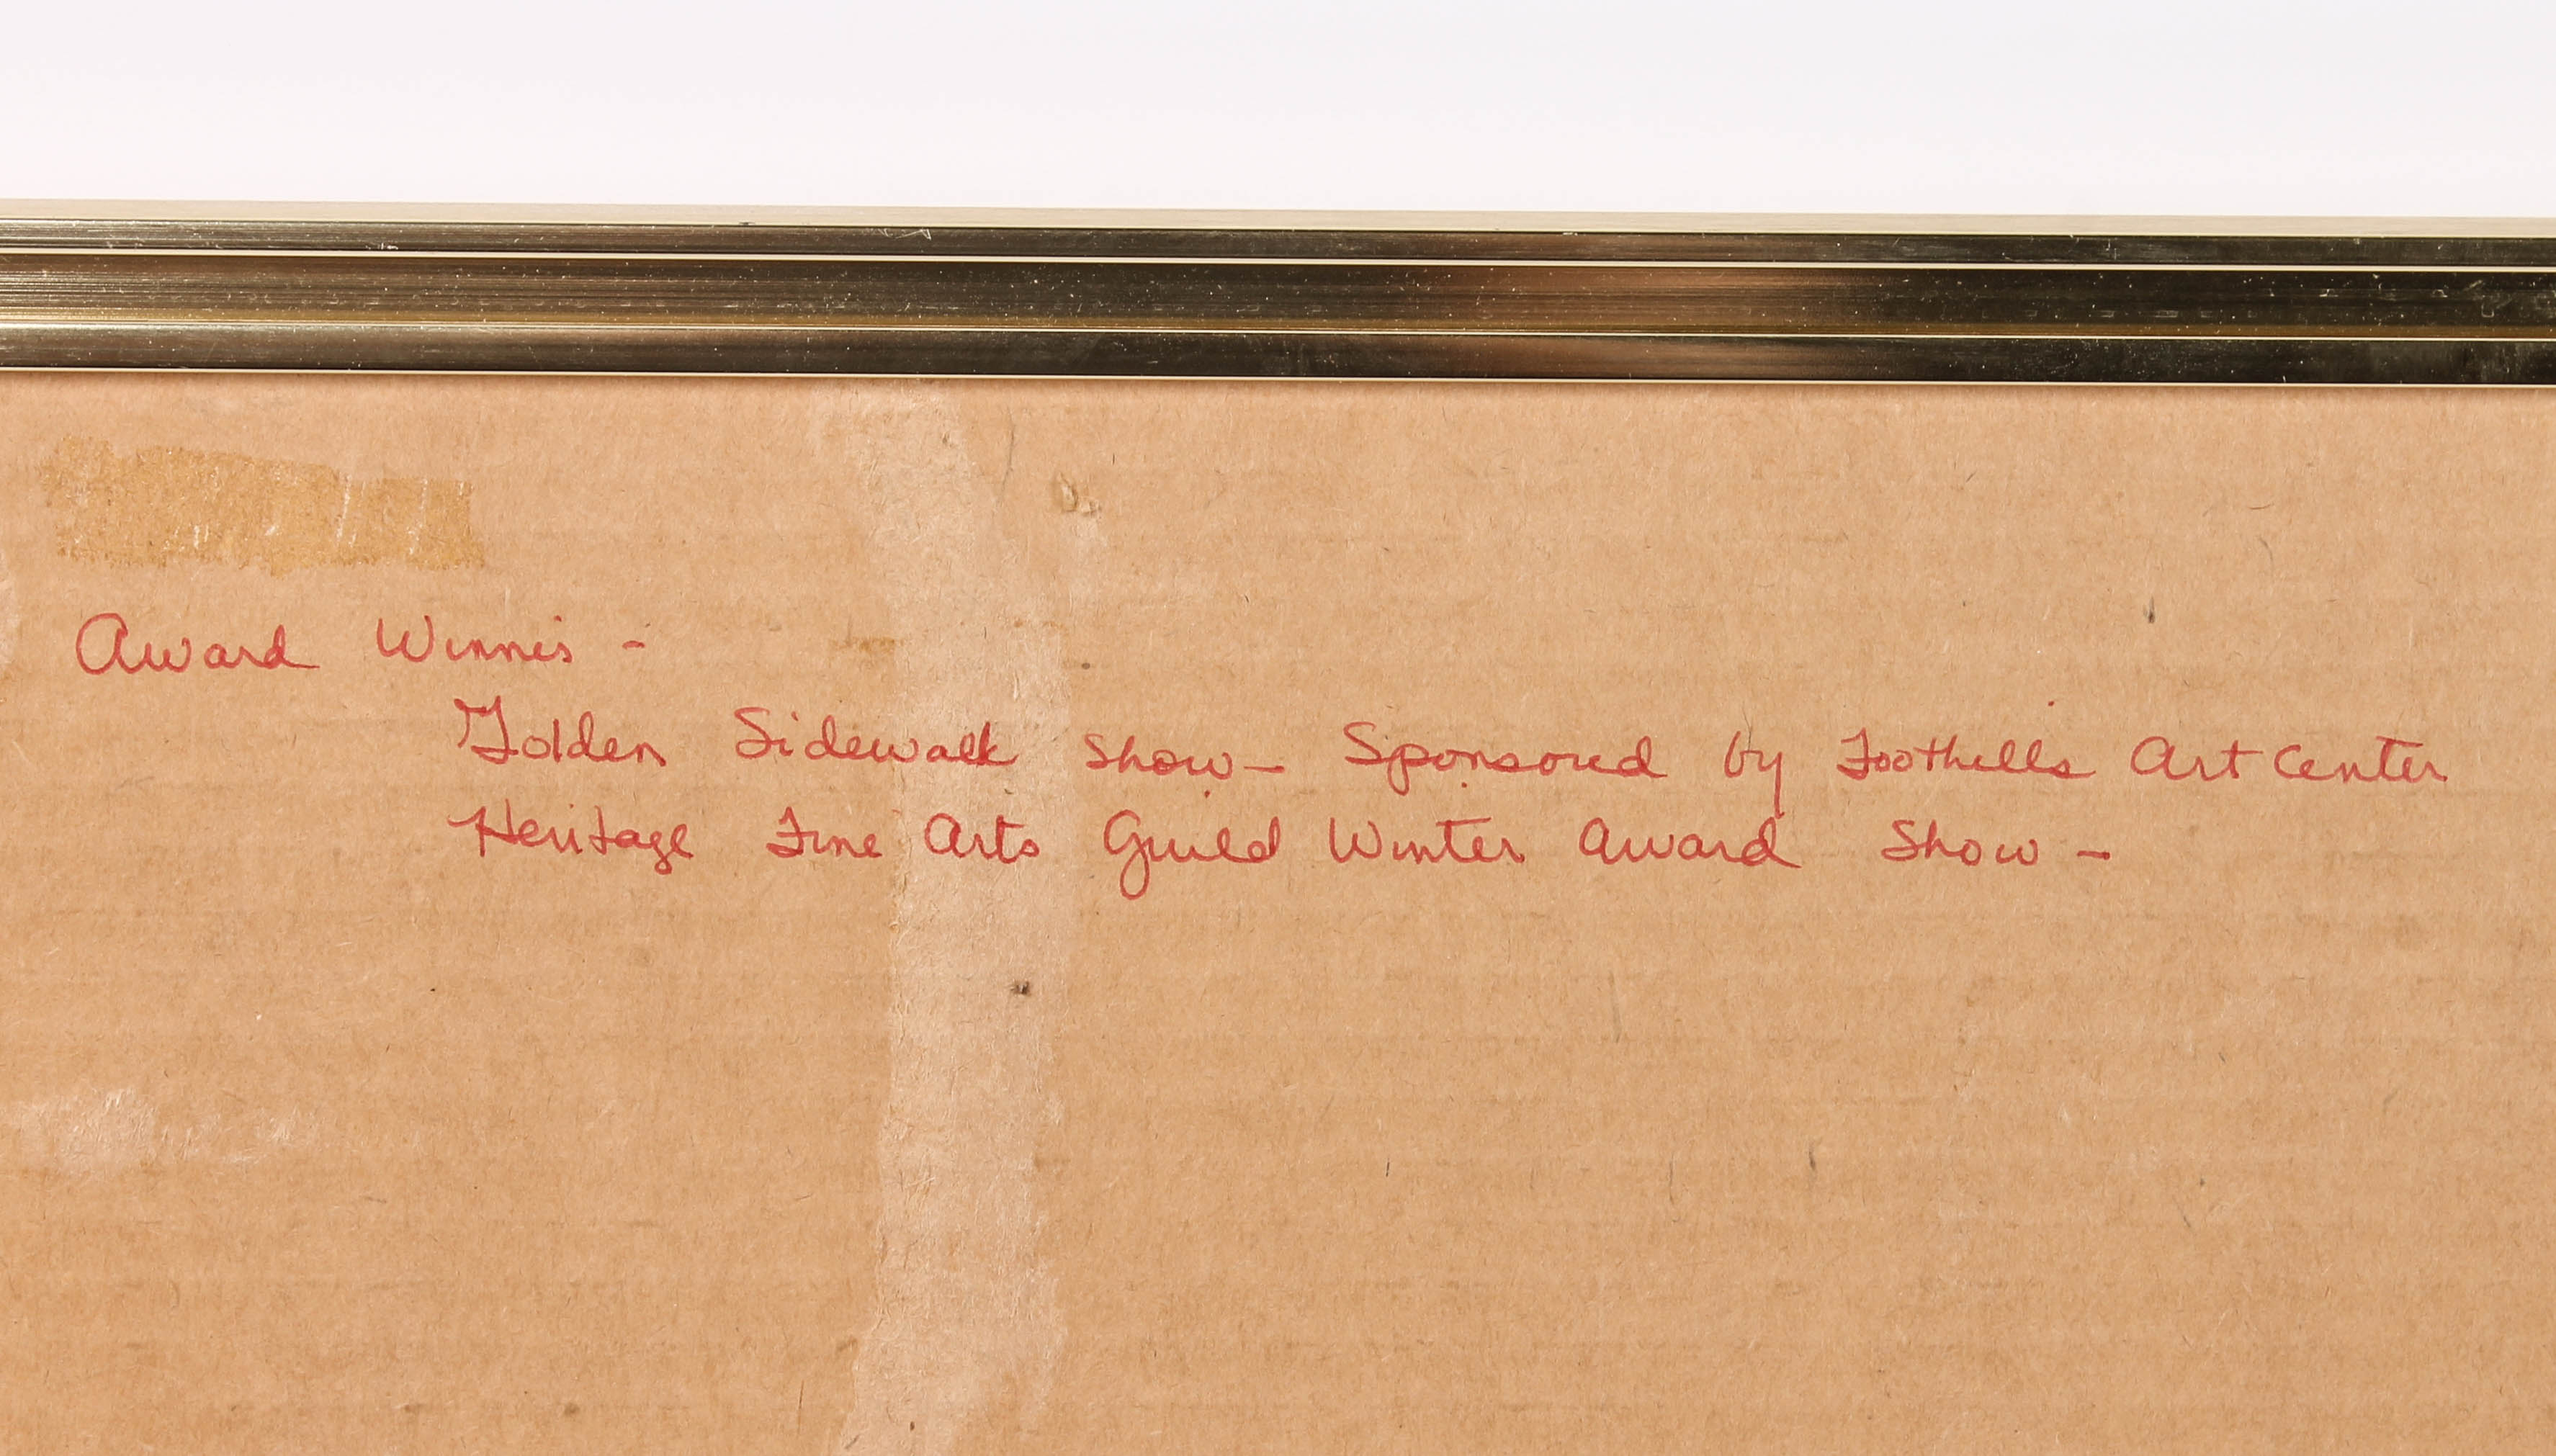 Award Winner -
Golden Sidewalk Show - Sponsored by Foothills Art Center
Heritage Fine Arts Guild Winter Award Show -